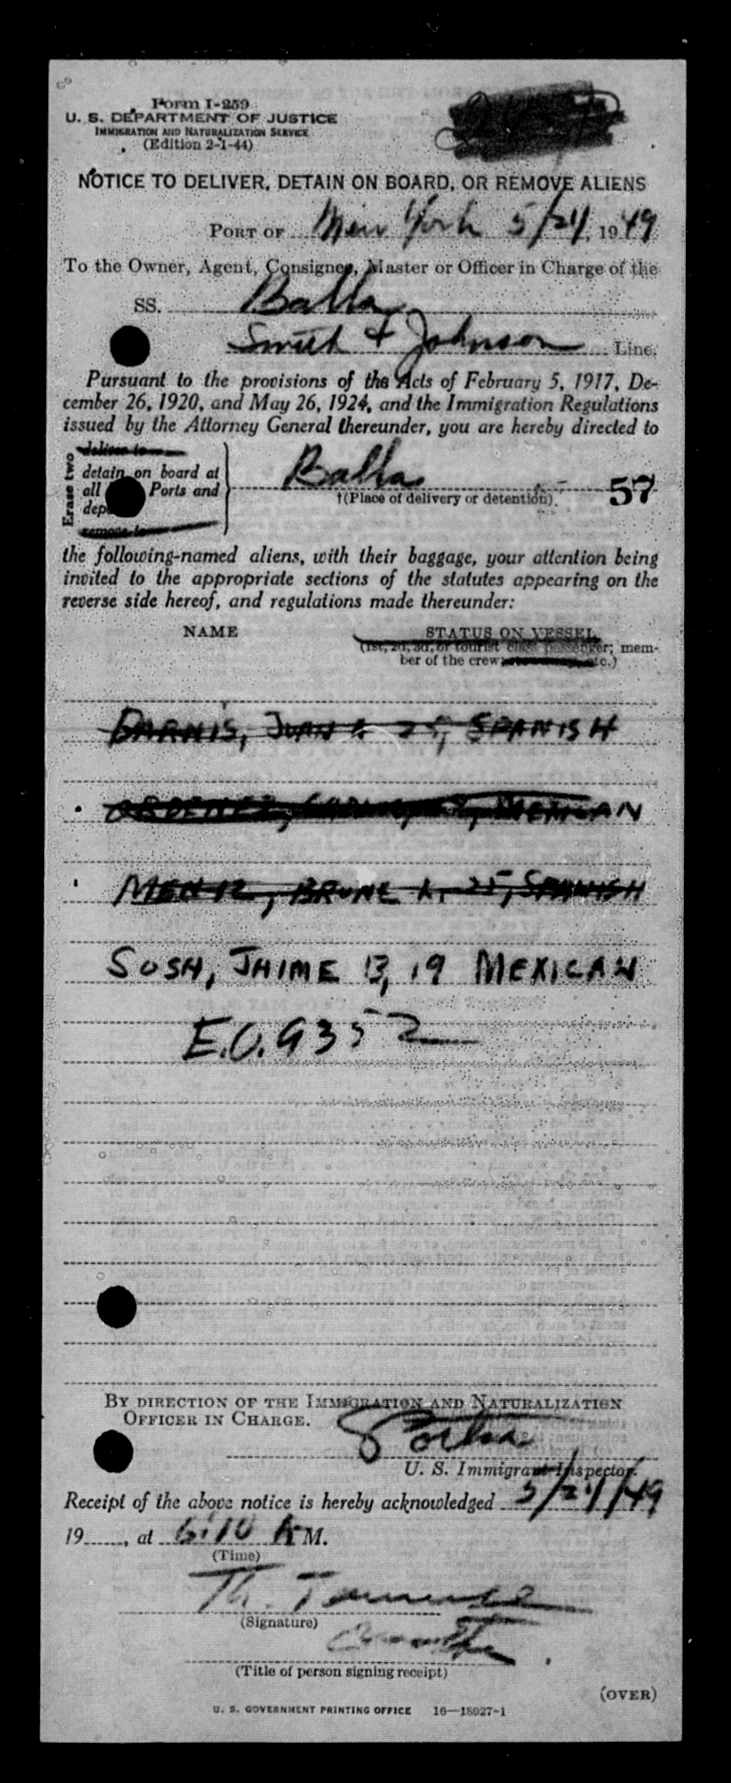 Form I-259
U. S. DEPARTMENT OF JUSTICE
IMMIGRATION AND NATURALIZATION SERVICE
(Edition 2-1-44)
NOTICE TO DELIVER, DETAIN ON BOARD, OR REMOVE ALIENS
PORT OF New York 5/24, 1949
To the Owner, Agent, Consignee, Master or Officer in Charge of the
SS. Balta
Smith & Johnson Line.
Pursuant to the provisions of the Acts of February 5, 1917, De-
cember 26, 1920, and May 26, 1924, and the Immigration Regulations
issued by the Attorney General thereunder, you are hereby directed to
Erase two
deliver to
detain on board at
all Ports and
remove to
Balta
57
†(Place of delivery or detention).
the following-named aliens, with their baggage, your attention being
invited to the appropriate sections of the statutes appearing on the
reverse side hereof, and regulations made thereunder:
NAME STATUS ON VESSEL
(1st, 2d, 3d, or tourist class passenger; mem-
ber of the crew etc.)
BARNIS, JUAN 25, SPANISH
MEXICAN
BRUNE 25, SPANISH
SOSH, JAIME B, 19 MEXICAN
E.O. 9352
BY DIRECTION OF THE IMMIGRATION AND NATURALIZATION
OFFICER IN CHARGE.
U. S. Immigrant Inspector.
Receipt of the above notice is hereby acknowledged 5/24/49
19, at 6:10 AM.
(Time)
(Signature)
(Title of person signing receipt)
(OVER)
U. S. GOVERNMENT PRINTING OFFICE 16—18027-1